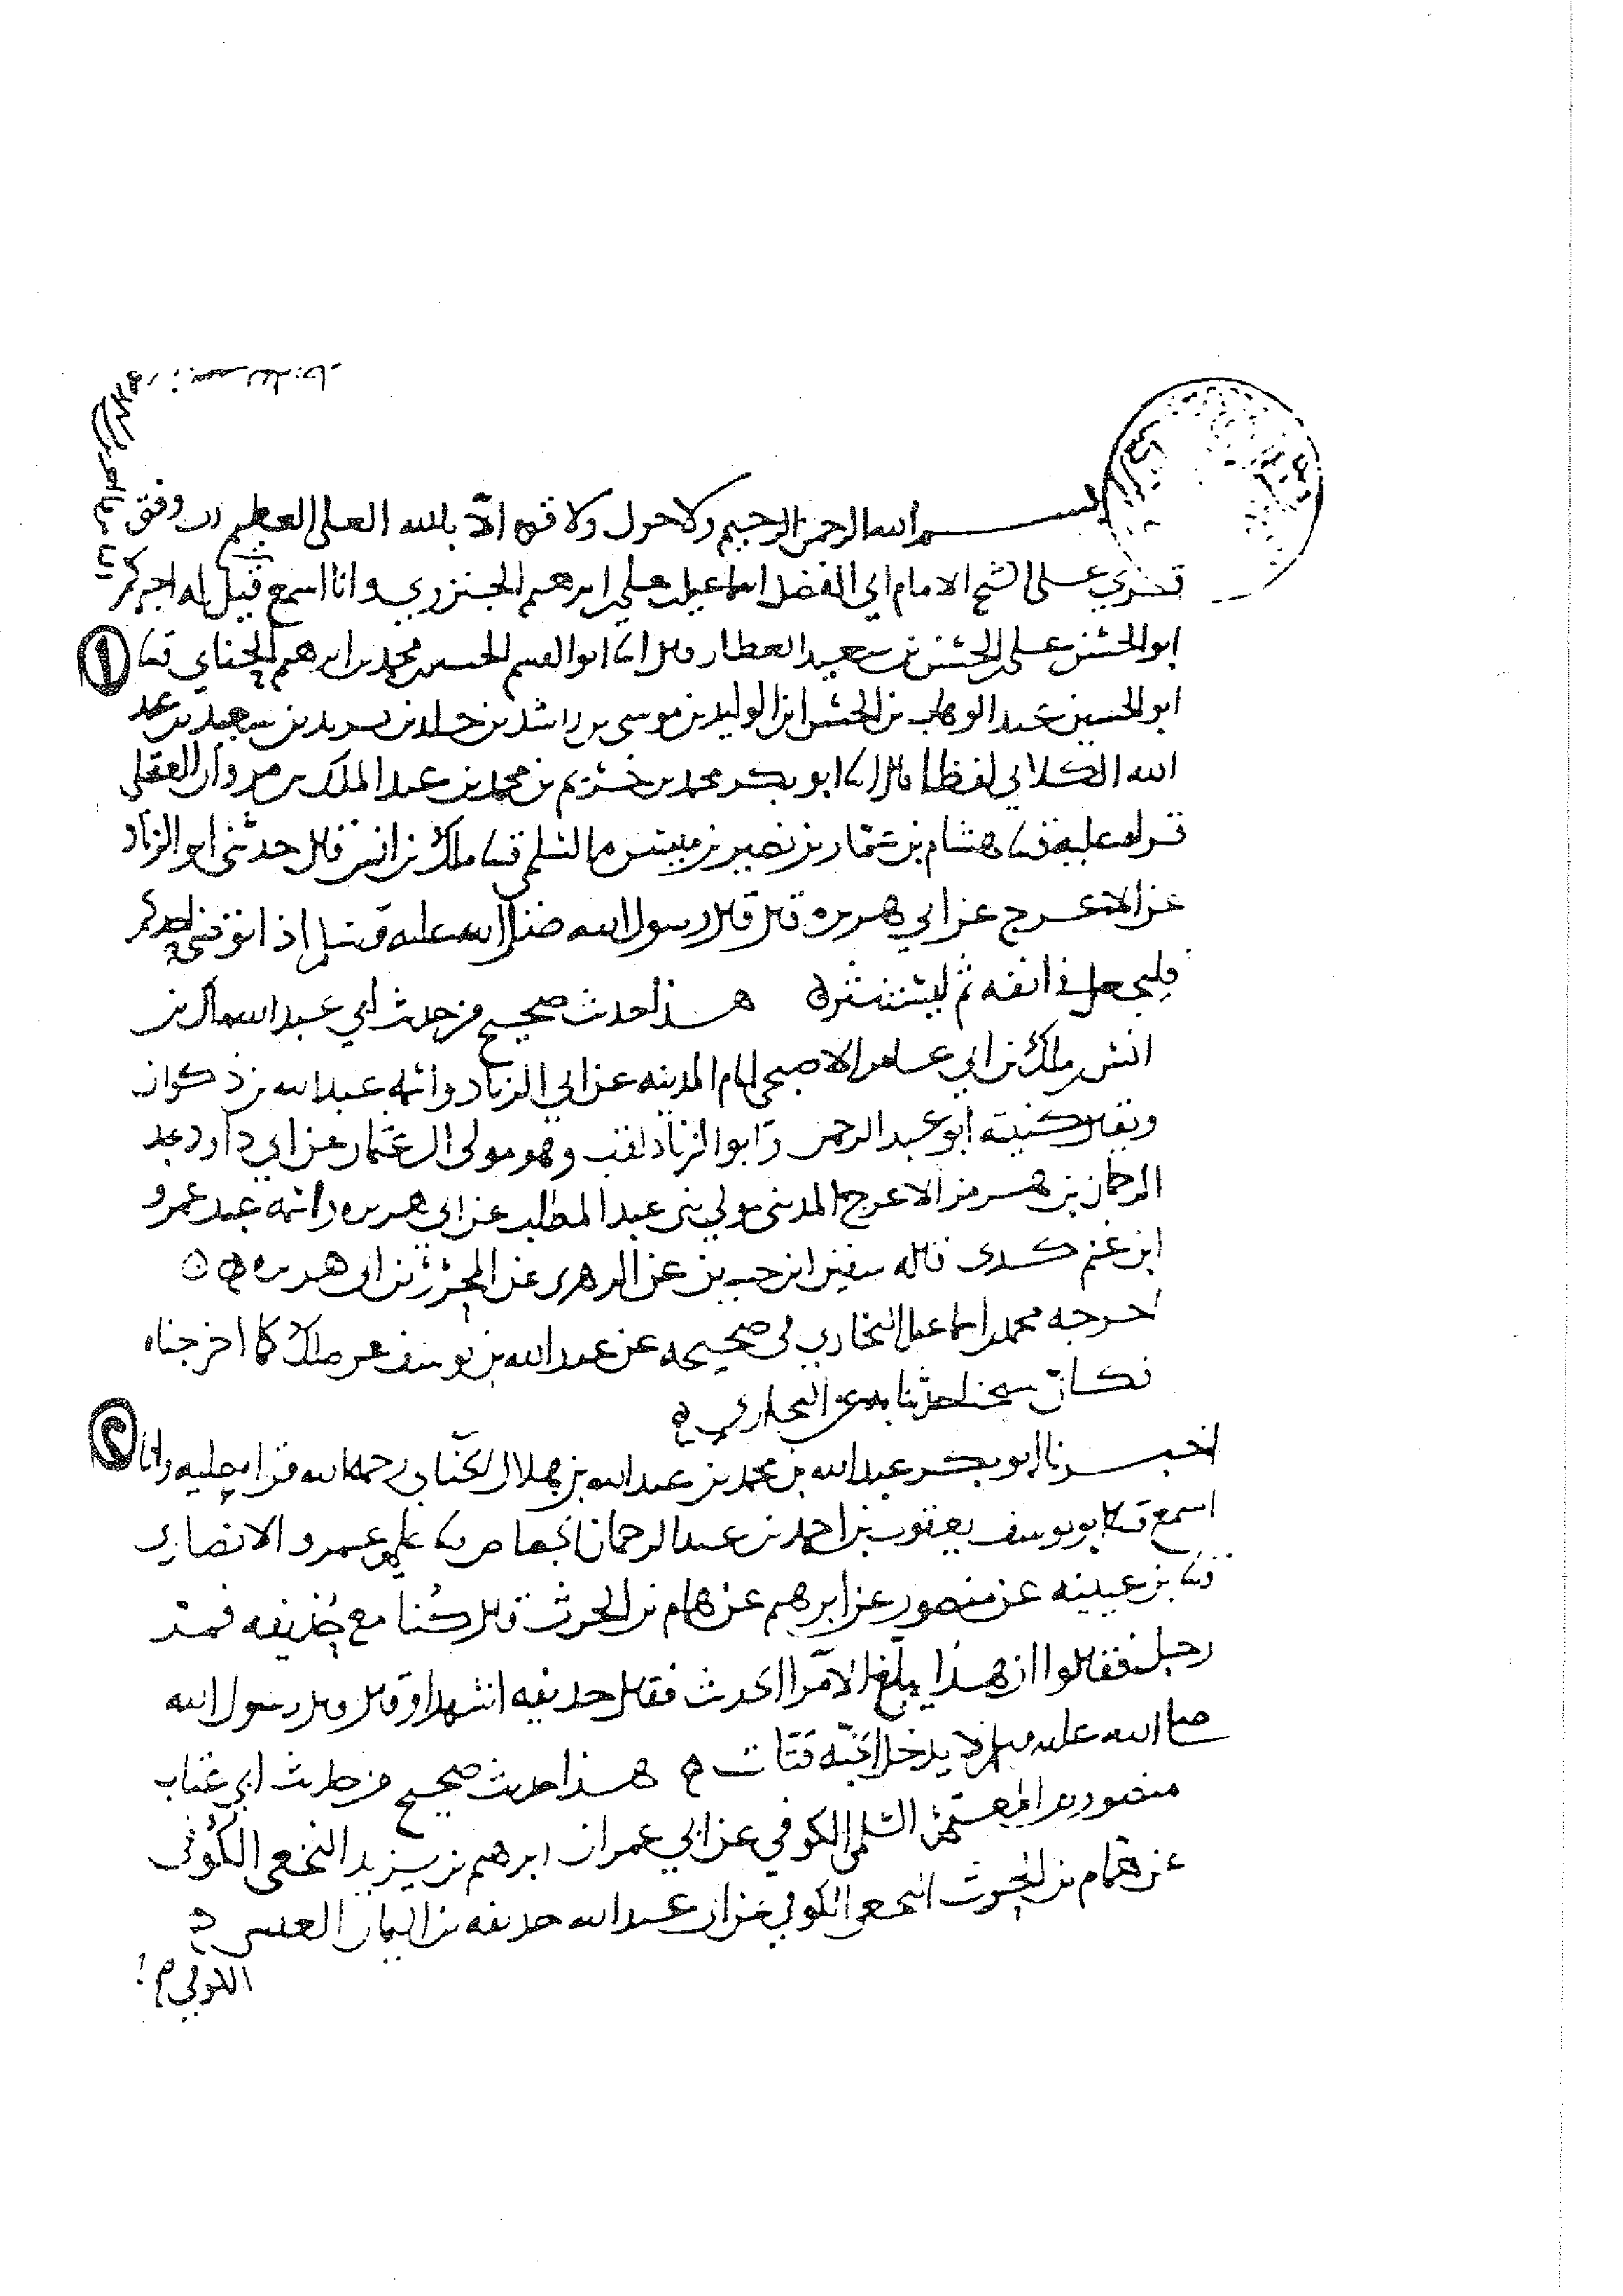 بسم الله الرحمن الرحيم ولا حول ولا قوه الا بالله العلي العظيم رب وفق
قري على الشيخ الامام ابي الفضل اسماعيل بن علي بن ابرهيم الجنزوي وانا اسمع قيل له اخبركم
ابو الحسن علي بن الحسن بن سعيد العطار قال انا ابو القسم الحسين بن محمد بن ابرهيم الحنائي ثنا
١
ابو الحسين عبد الوهاب بن الحسن ابن الوليد بن موسى بن راشد بن خلد بن يزيد بن سعيد بن عبد
الله الكلابي لفظا قال انا ابو بكر محمد بن خريم بن محمد بن عبد الملك بن مروان العقيلي
قراه عليه ثنا هشام بن عمار بن نصير بن ميسره السلمي ثنا ملك بن انس قال حدثني ابو الزناد
عن الاعرج عن ابي هريره قال قال رسول الله صلى الله عليه وسلم اذا توضى احدكم
فليجعل في انفه ثم ليستنثر ه هذا حديث صحيح من حديث ابي عبد الله ملك بن
انس بن ملك بن ابي عامر الاصبحي امام المدينه عن ابي الزناد واسمه عبد الله بن ذكوان
ويقال كنيته ابو عبد الرحمن وابو الزناد لقب وهو مولى ال عثمان عن ابي داود عبد
الرحمان بن هرمز الاعرج المدني مولى بني عبد المطلب عن ابي هريره واسمه عبد عمرو
ابن غنم كذى قاله سفين ابن حسين عن الزهري عن المحرر بن ابي هريره ه
اخرجه محمد بن اسماعيل البخاري في صحيحه عن عبد الله بن يوسف عن ملك كما اخرجناه
فكان شيخنا حدثنا به عن البخاري ه
اخبرنا ابو بكر عبد الله بن محمد بن عبد الله بن هلال الحنائي رحمه الله قراه عليه وانا
٢
اسمع ثنا ابو يوسف يعقوب بن احمد بن عبد الرحمان الجصاص ثنا علي بن عمرو الانصاري
ثنا بن عيينه عن منصور عن ابرهيم عن همام بن الحرث قال كنا مع حذيفه فمر
رجل فقالوا ان هذا يبلغ الامرا الحديث فقال حذيفه اشهد او قال قال رسول الله
صلى الله عليه وسلم لا يدخل الجنه قتات ه هذا حديث صحيح من حديث ابي عتاب
منصور بن المعتمر السلمي الكوفي عن ابي عمران ابرهيم بن يزيد النخعي الكوفي
عن همام بن الحرث النخعي الكوفي عن ابي عبد الله حذيفه بن اليمان العبسي ه
الكوفي